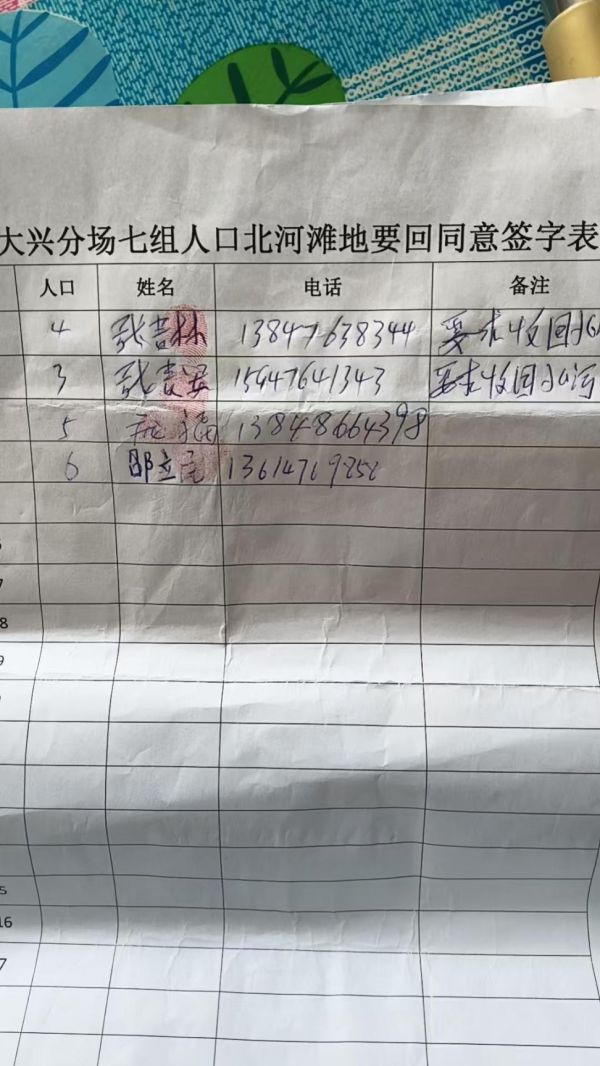 大兴分场七组人口北河滩地要回同意签字表
人口 姓名 电话 备注
4 张吉林 13847638344 要求收回北
3 张吉 15947641343 要求收回北河
5 福 13848664398
6 邵立 13614769252
7
8
9
5
16
7